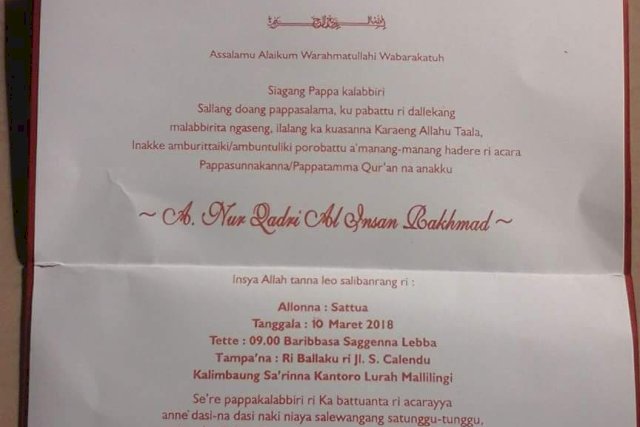 Assalamu Alaikum Warahmatullahi Wabarakatuh
Siagang Pappa kalabbiri
Sallang doang pappasalama, ku pabattu ri dallekang
malabbirita ngaseng, ilalang ka kuasanna Karaeng Allahu Taala,
Inakke amburittaiki/ambuntuliki porobattu a'manang-manang hadere ri acara
Pappasunnakanna/Pappatamma Qur'an na anakku
~ A. Nur Qadri Al Insan Rakhmad ~
Insya Allah tanna leo salibanrang ri :
Allonna : Sattua
Tanggala : 10 Maret 2018
Tette : 09.00 Baribbasa Saggenna Lebba
Tampa'na : Ri Ballaku ri Jl. S. Calendu
Kalimbaung Sa'rinna Kantoro Lurah Mallilingi
Se're pappakalabbiri ri Ka battuanta ri acarayya
anne' dasi-na dasi naki niaya salewangang satunggu-tunggu,